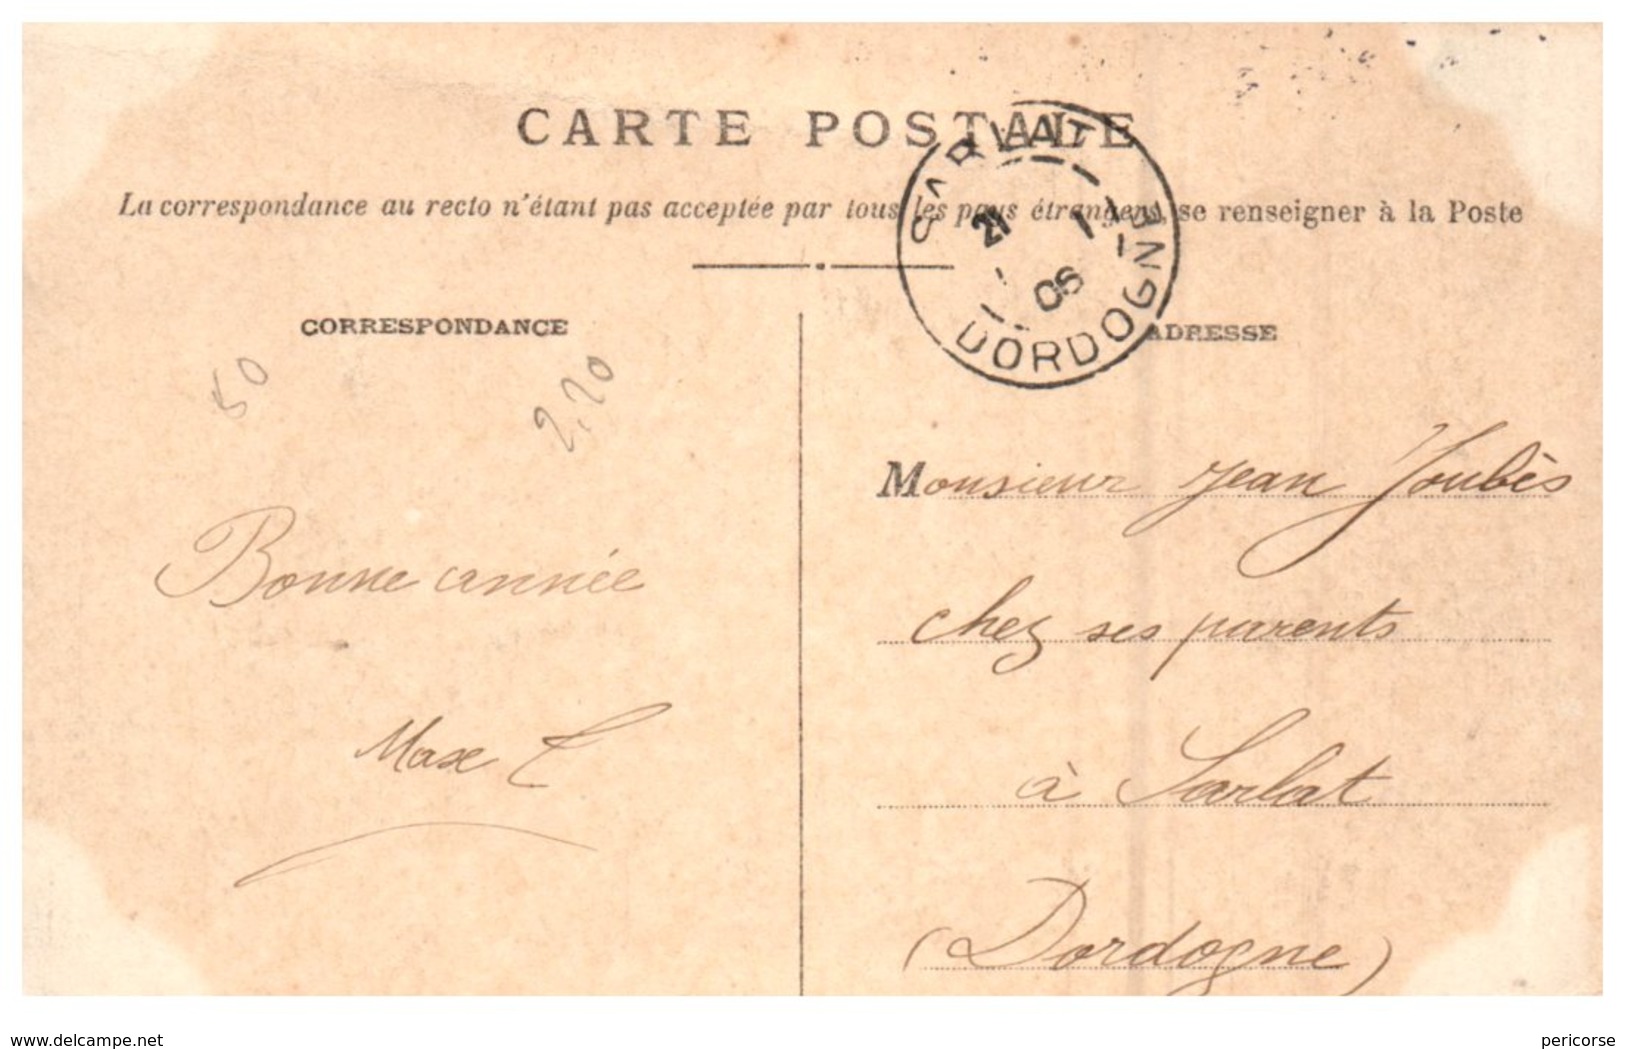 CARTE POSTALE
La correspondance au recto n'étant pas acceptée par tous les pays étrangers, se renseigner à la Poste
SARLAT
21 1
06
DORDOGNE
CORRESPONDANCE
ADRESSE
50
2,20
Monsieur Jean Joubès
Bonne année
chez ses parents
Max
à Sarlat
(Dordogne)
www.delcampe.net
pericorse